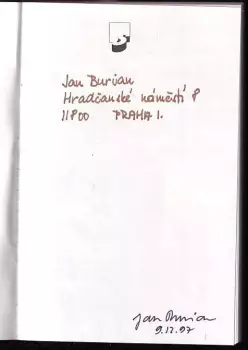 Jan Burian
Hradčanské náměstí 8
11800 PRAHA 1.
Jan Burian
9.12.97